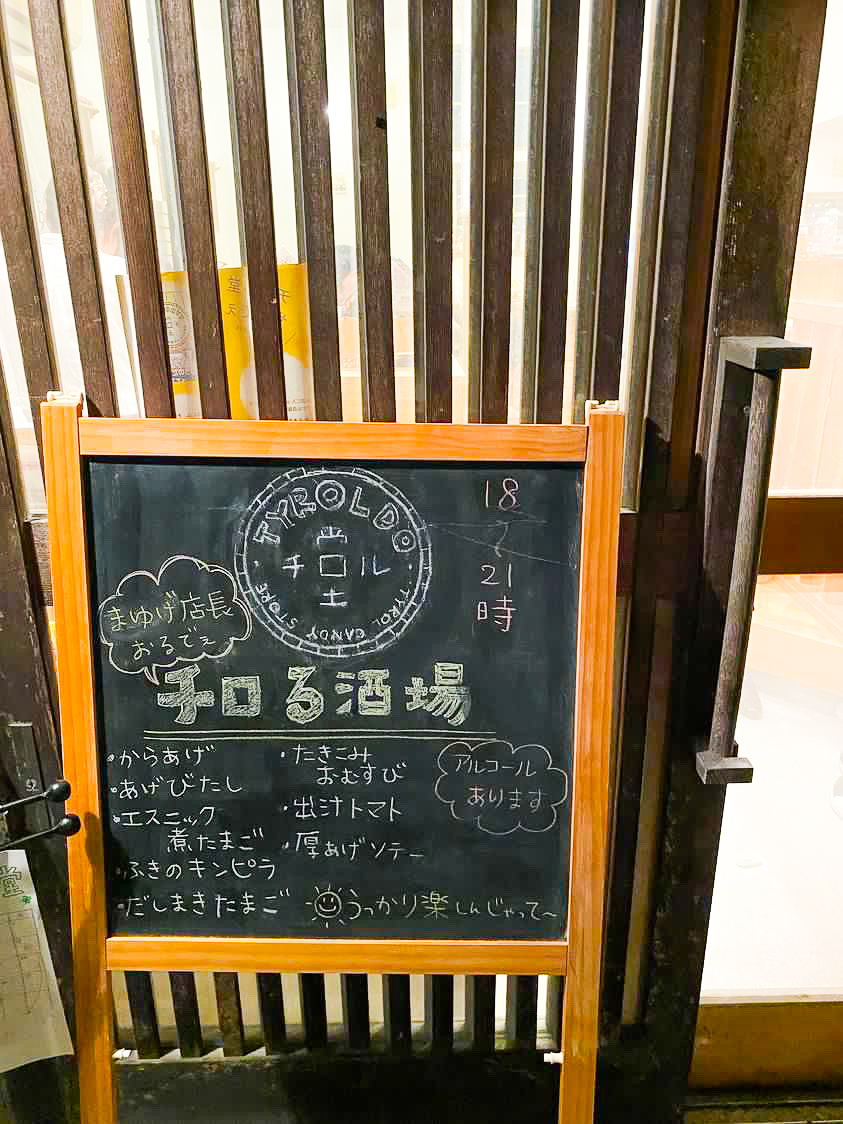 TYROLDO
堂
チロル
土
・TIROL CANDY STORE・
18
〜
21
時
まゆげ店長
おるでぇ
チロる酒場
・からあげ
・あげびたし
・エスニック
煮たまご
・ふきのキンピラ
・だしまきたまご
・たきこみ
おむすび
・出汁トマト
・厚あげソテー
アルコール
あります
うっかり楽しんじゃって〜
堂